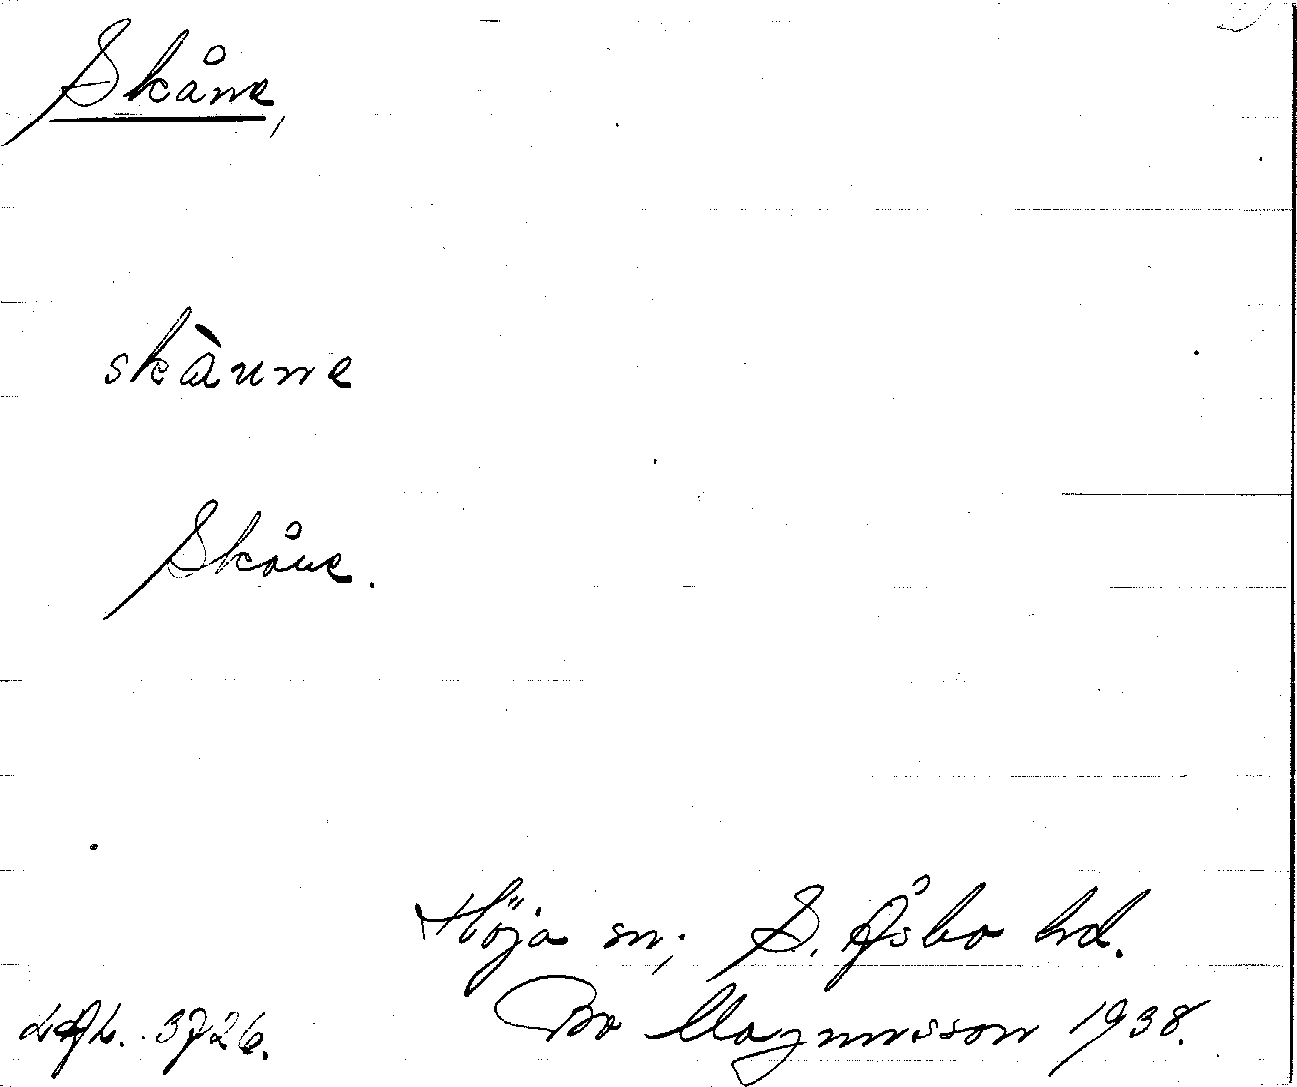 Skåne,
skàune
Skåne.
Höja sn; S. Åsbo hd.
Bo Magnusson 1938.
3726.